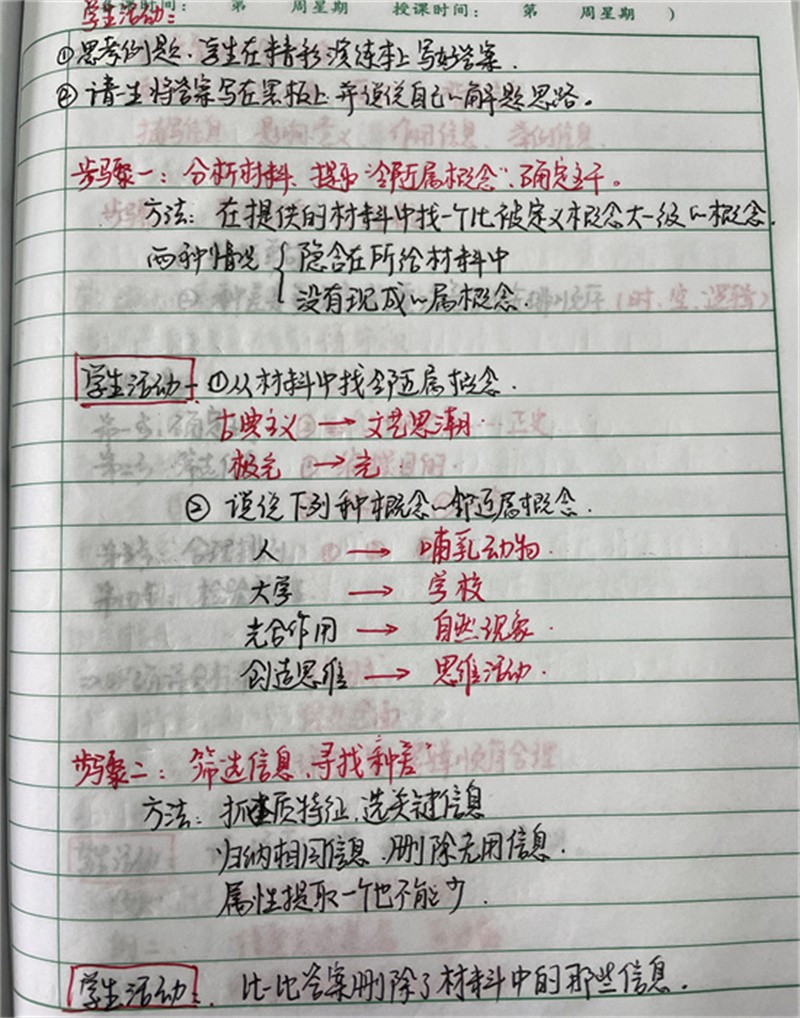 时间: 第 周星期 授课时间: 第 周星期 )
学生活动:
①思考例题,学生在精彩演练本上写好答案.
②请一生将答案写在黑板上并说说自己的解题思路。
步骤一:分析材料、提取“邻近属概念”,确定主干。
方法:在提供的材料中找一个比被定义概念大一级的概念.
两种情况 { 隐含在所给材料中
没有现成的属概念.
学生活动- ①从材料中找邻近属概念.
古典主义 → 文艺思潮.
极光 → 光.
② 说说下列种概念的邻近属概念.
人 → 哺乳动物.
大学 → 学校
光合作用 → 自然现象.
创造思维 → 思维活动.
步骤二:筛选信息,寻找“种差”
方法:抓本质特征,选关键信息
归纳相同信息,删除无用信息.
属性提取一个也不能少.
学生活动: 比一比答案删除了材料中的那些信息.